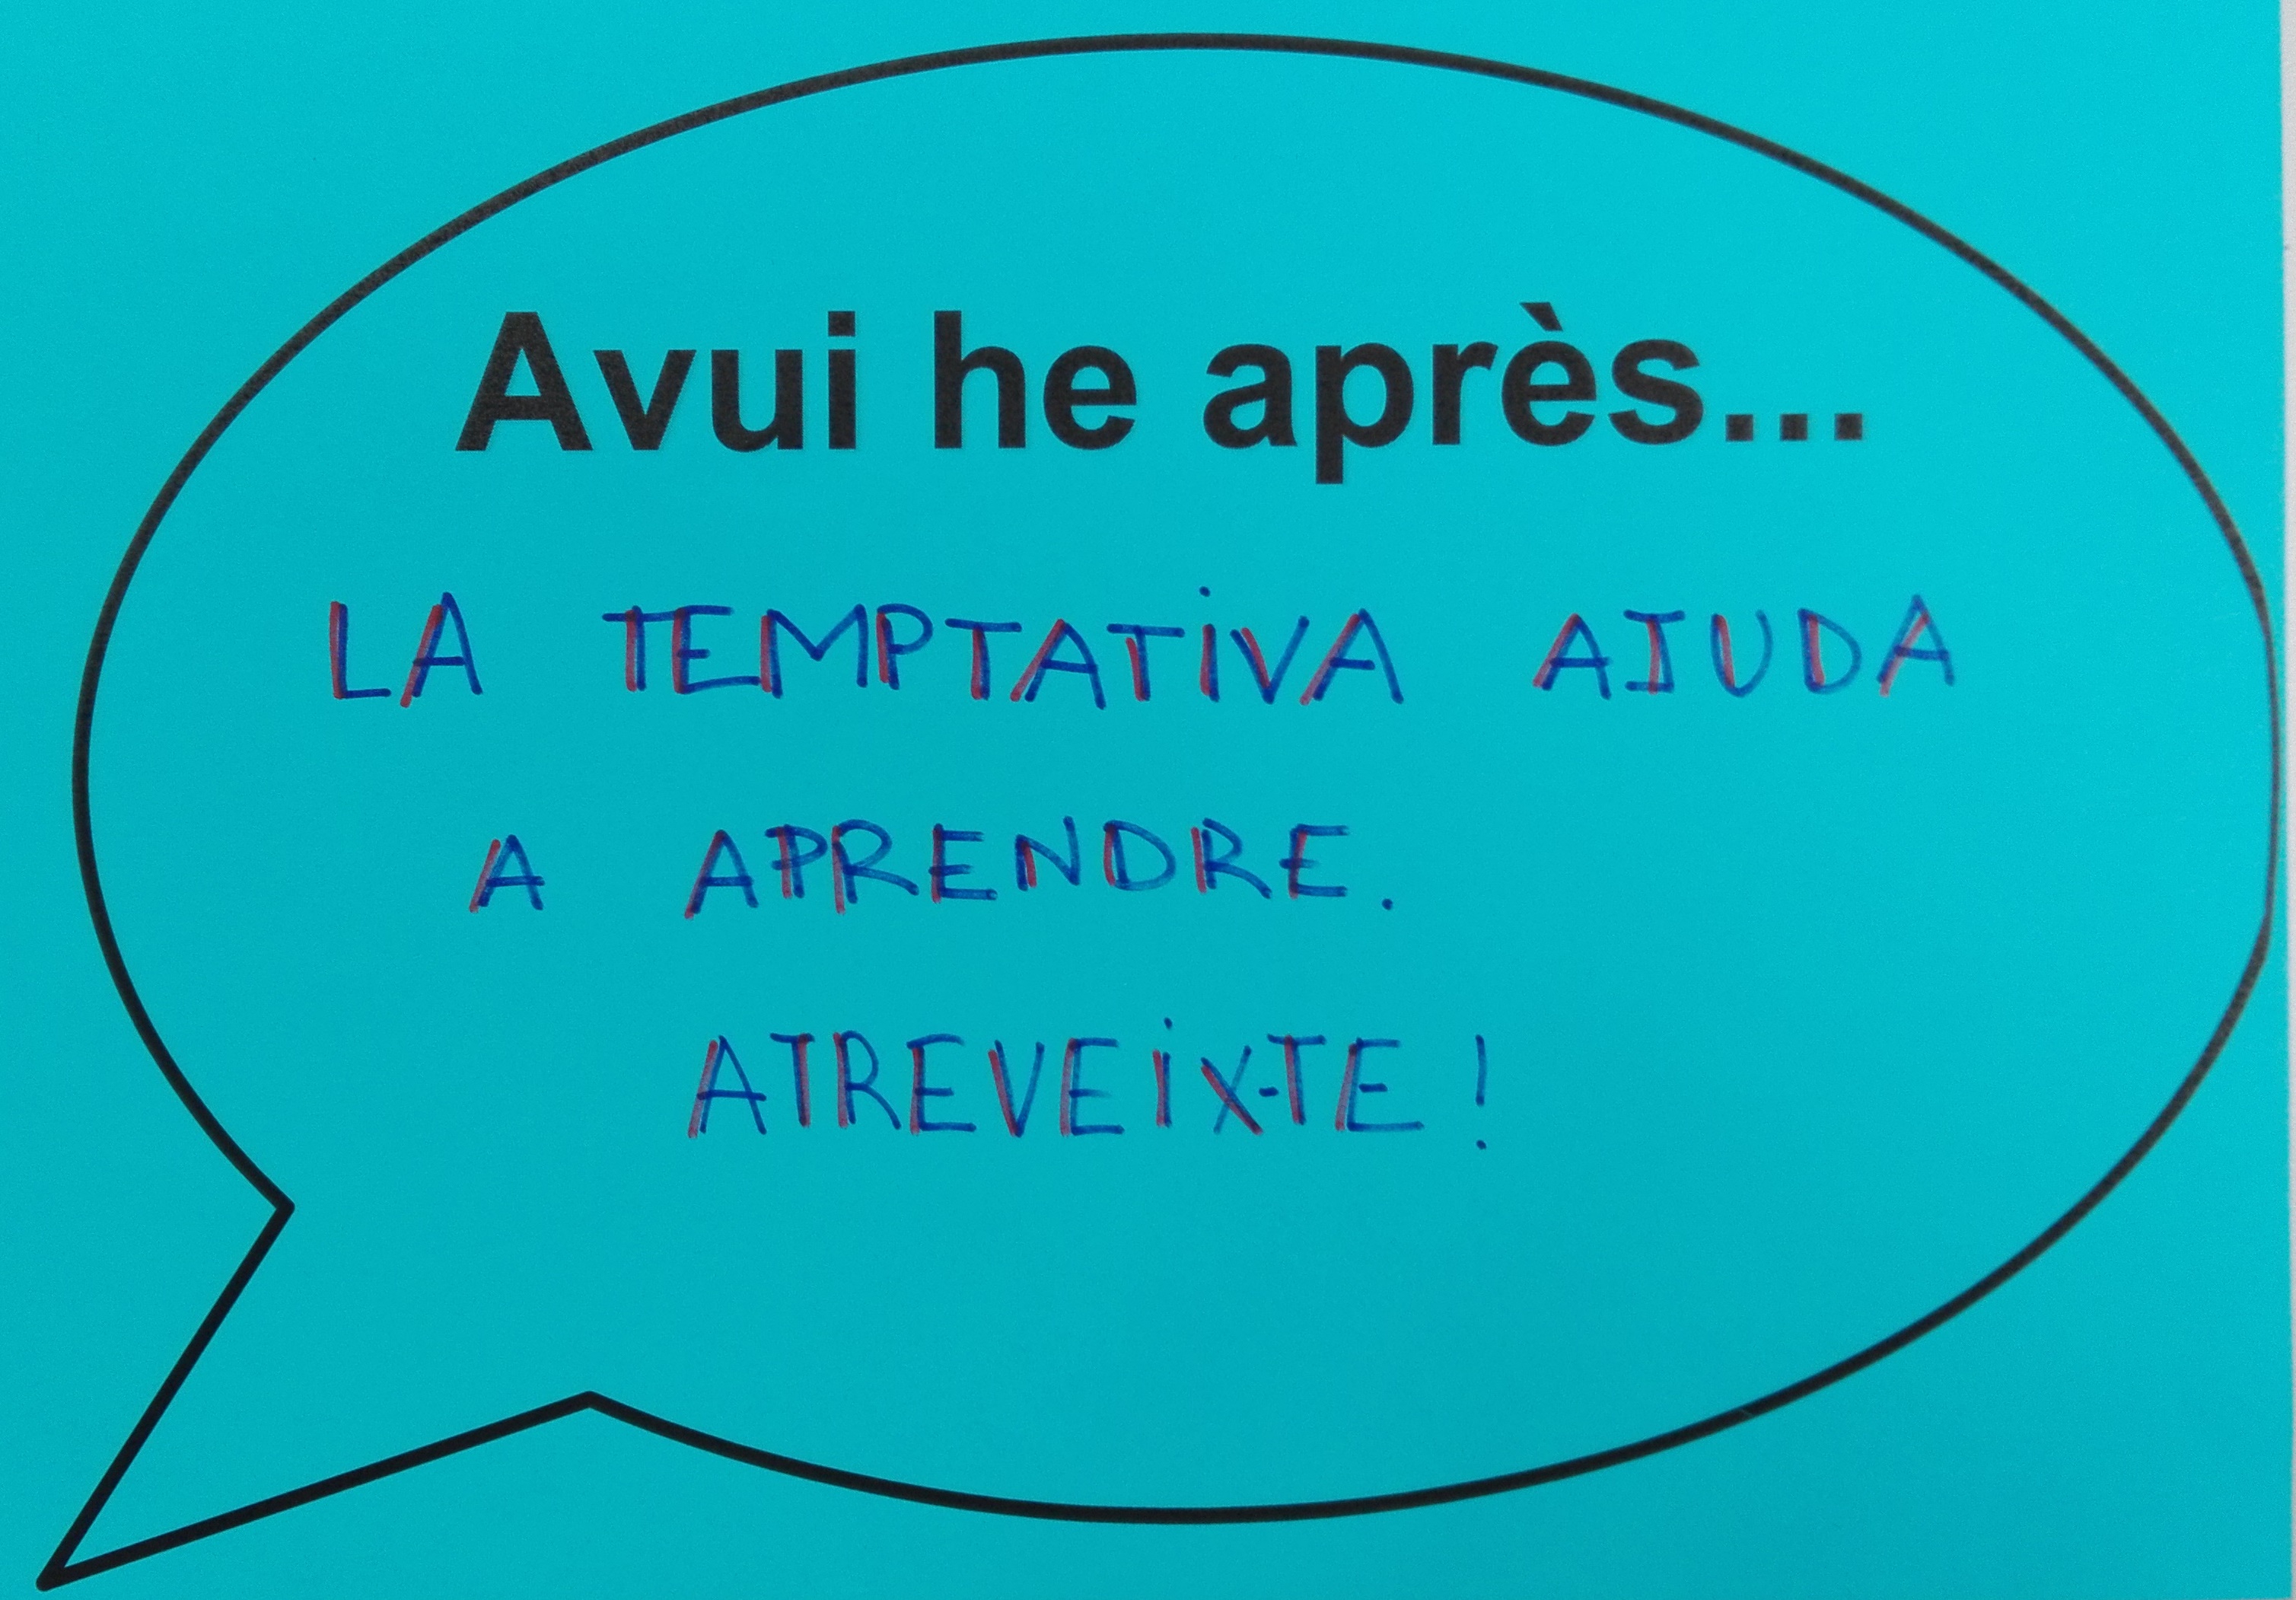 Avui he après...
LA TEMPTATiVA AJUDA
A APRENDRE.
ATREVEiX-TE!